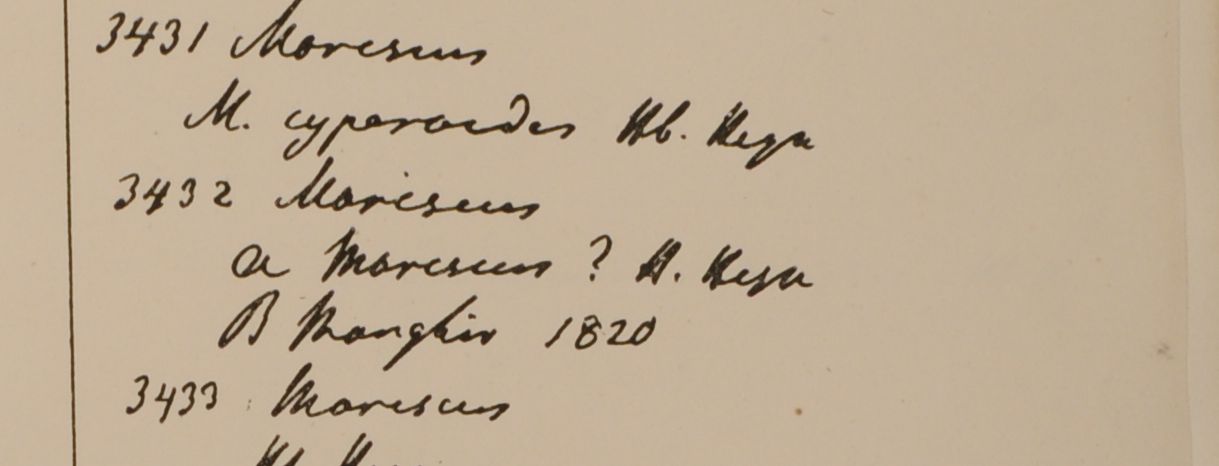 3431 Mariscus
M. cyperoides Hb. Heyn
3432 Mariscus
a Mariscus ? H. Heyn
B Monghir 1820
3433 Mariscus